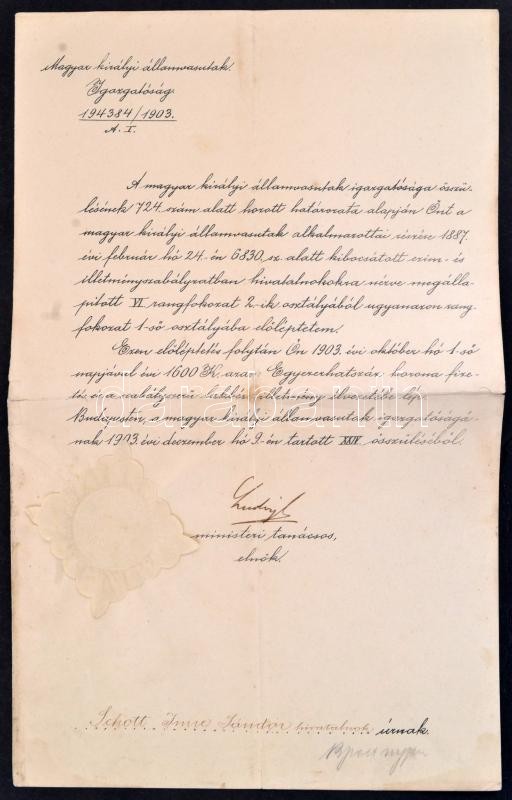 Magyar királyi államvasutak.
Igazgatóság.
194384/1903.
A. I.
A magyar királyi államvasutak igazgatósága összü-
lésének 724. szám alatt hozott határozata alapján Önt a
magyar királyi államvasutak alkalmazottai részére 1887.
évi február hó 24-én 6830. sz. alatt kibocsátott czim- és
illetményszabályzatban hivatalnokokra nézve megálla-
pitott VI rangfokozat 2.-ik osztályából ugyanazon rang-
fokozat 1-ső osztályába előléptetem.
Ezen előléptetés folytán Ön 1903. évi október hó 1-ső
napjával évi 1600 K. azaz Egyezerhatszáz korona fize-
tés és a szabályszerű lakbér illetmény élvezetébe lép.
Budapesten, a magyar királyi államvasutak igazgatóságá-
nak 1903. évi deczember hó 9-én tartott XXIV. összüléséből.
Ludvigh
ministeri tanácsos,
elnök.
Schott Imre Sándor hivatalnok úrnak.